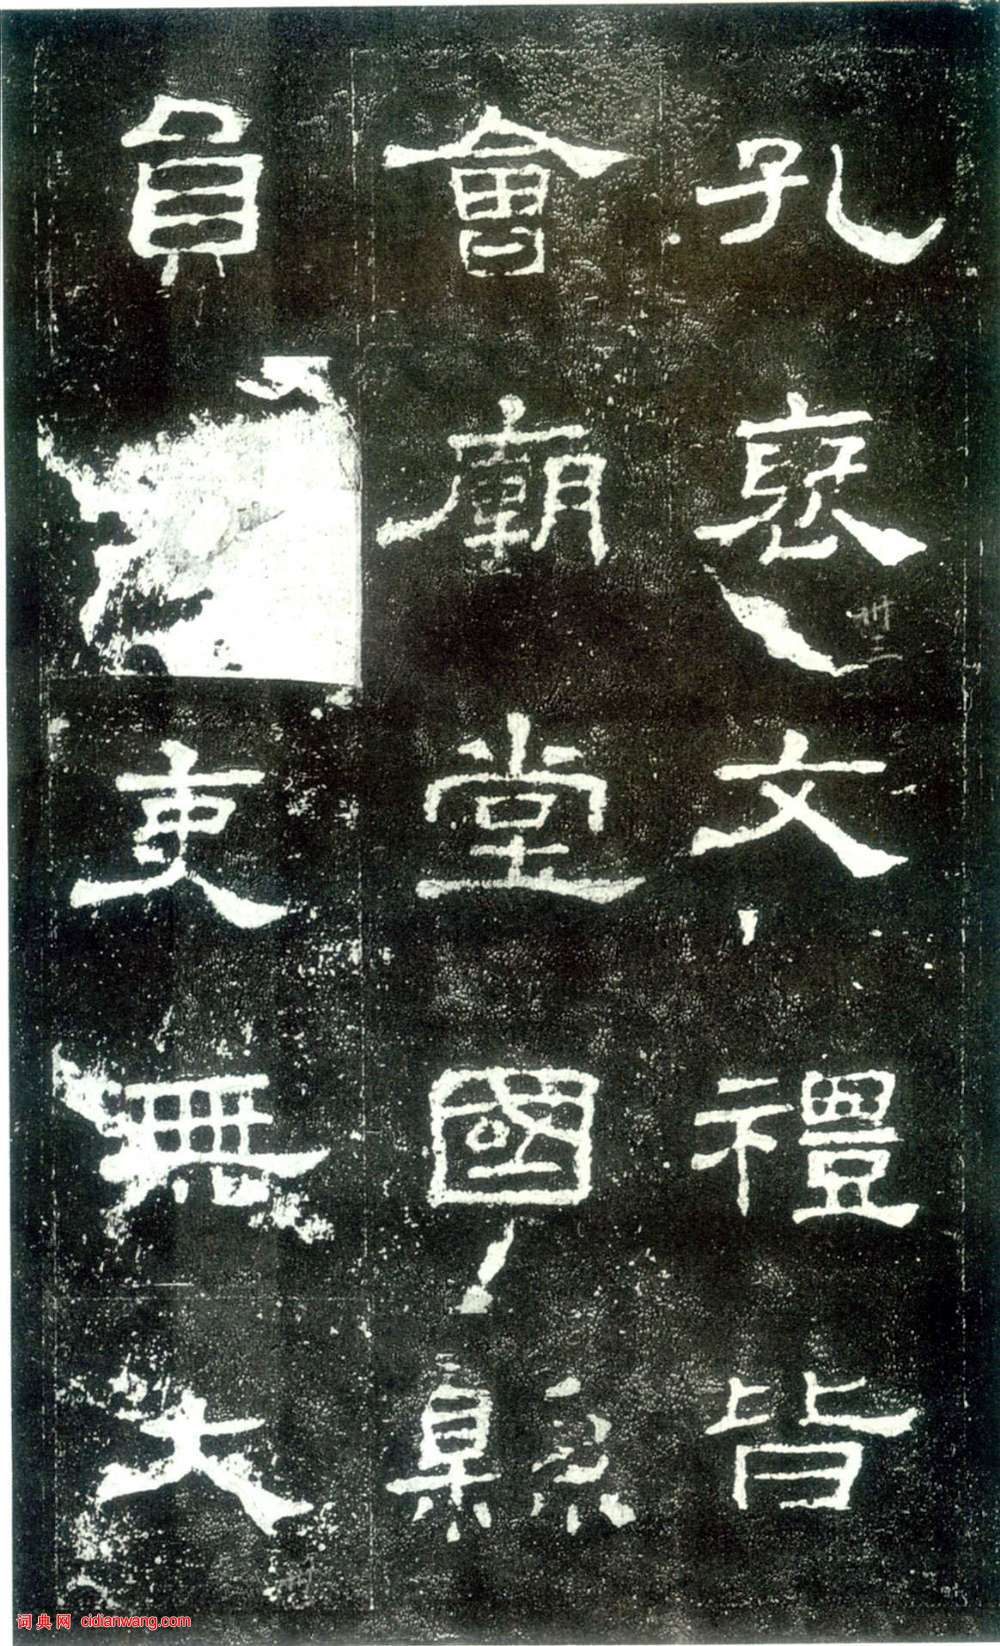 孔褒文禮皆
會廟堂國縣
員吏無大
词典网 cidianwang.com